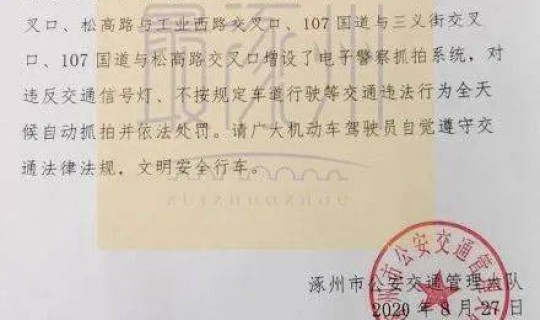 叉口、松高路与工业西路交叉口、107 国道与三义街交叉
口、107 国道与松高路交叉口增设了电子警察抓拍系统，对
违反交通信号灯、不按规定车道行驶等交通违法行为全天
候自动抓拍并依法处罚。请广大机动车驾驶员自觉遵守交
通法律法规，文明安全行车。
最涿州
ZUIZHUOZHOU
涿州市公安交通管理大队
2020 年 8 月 27 日
州市公安交通管